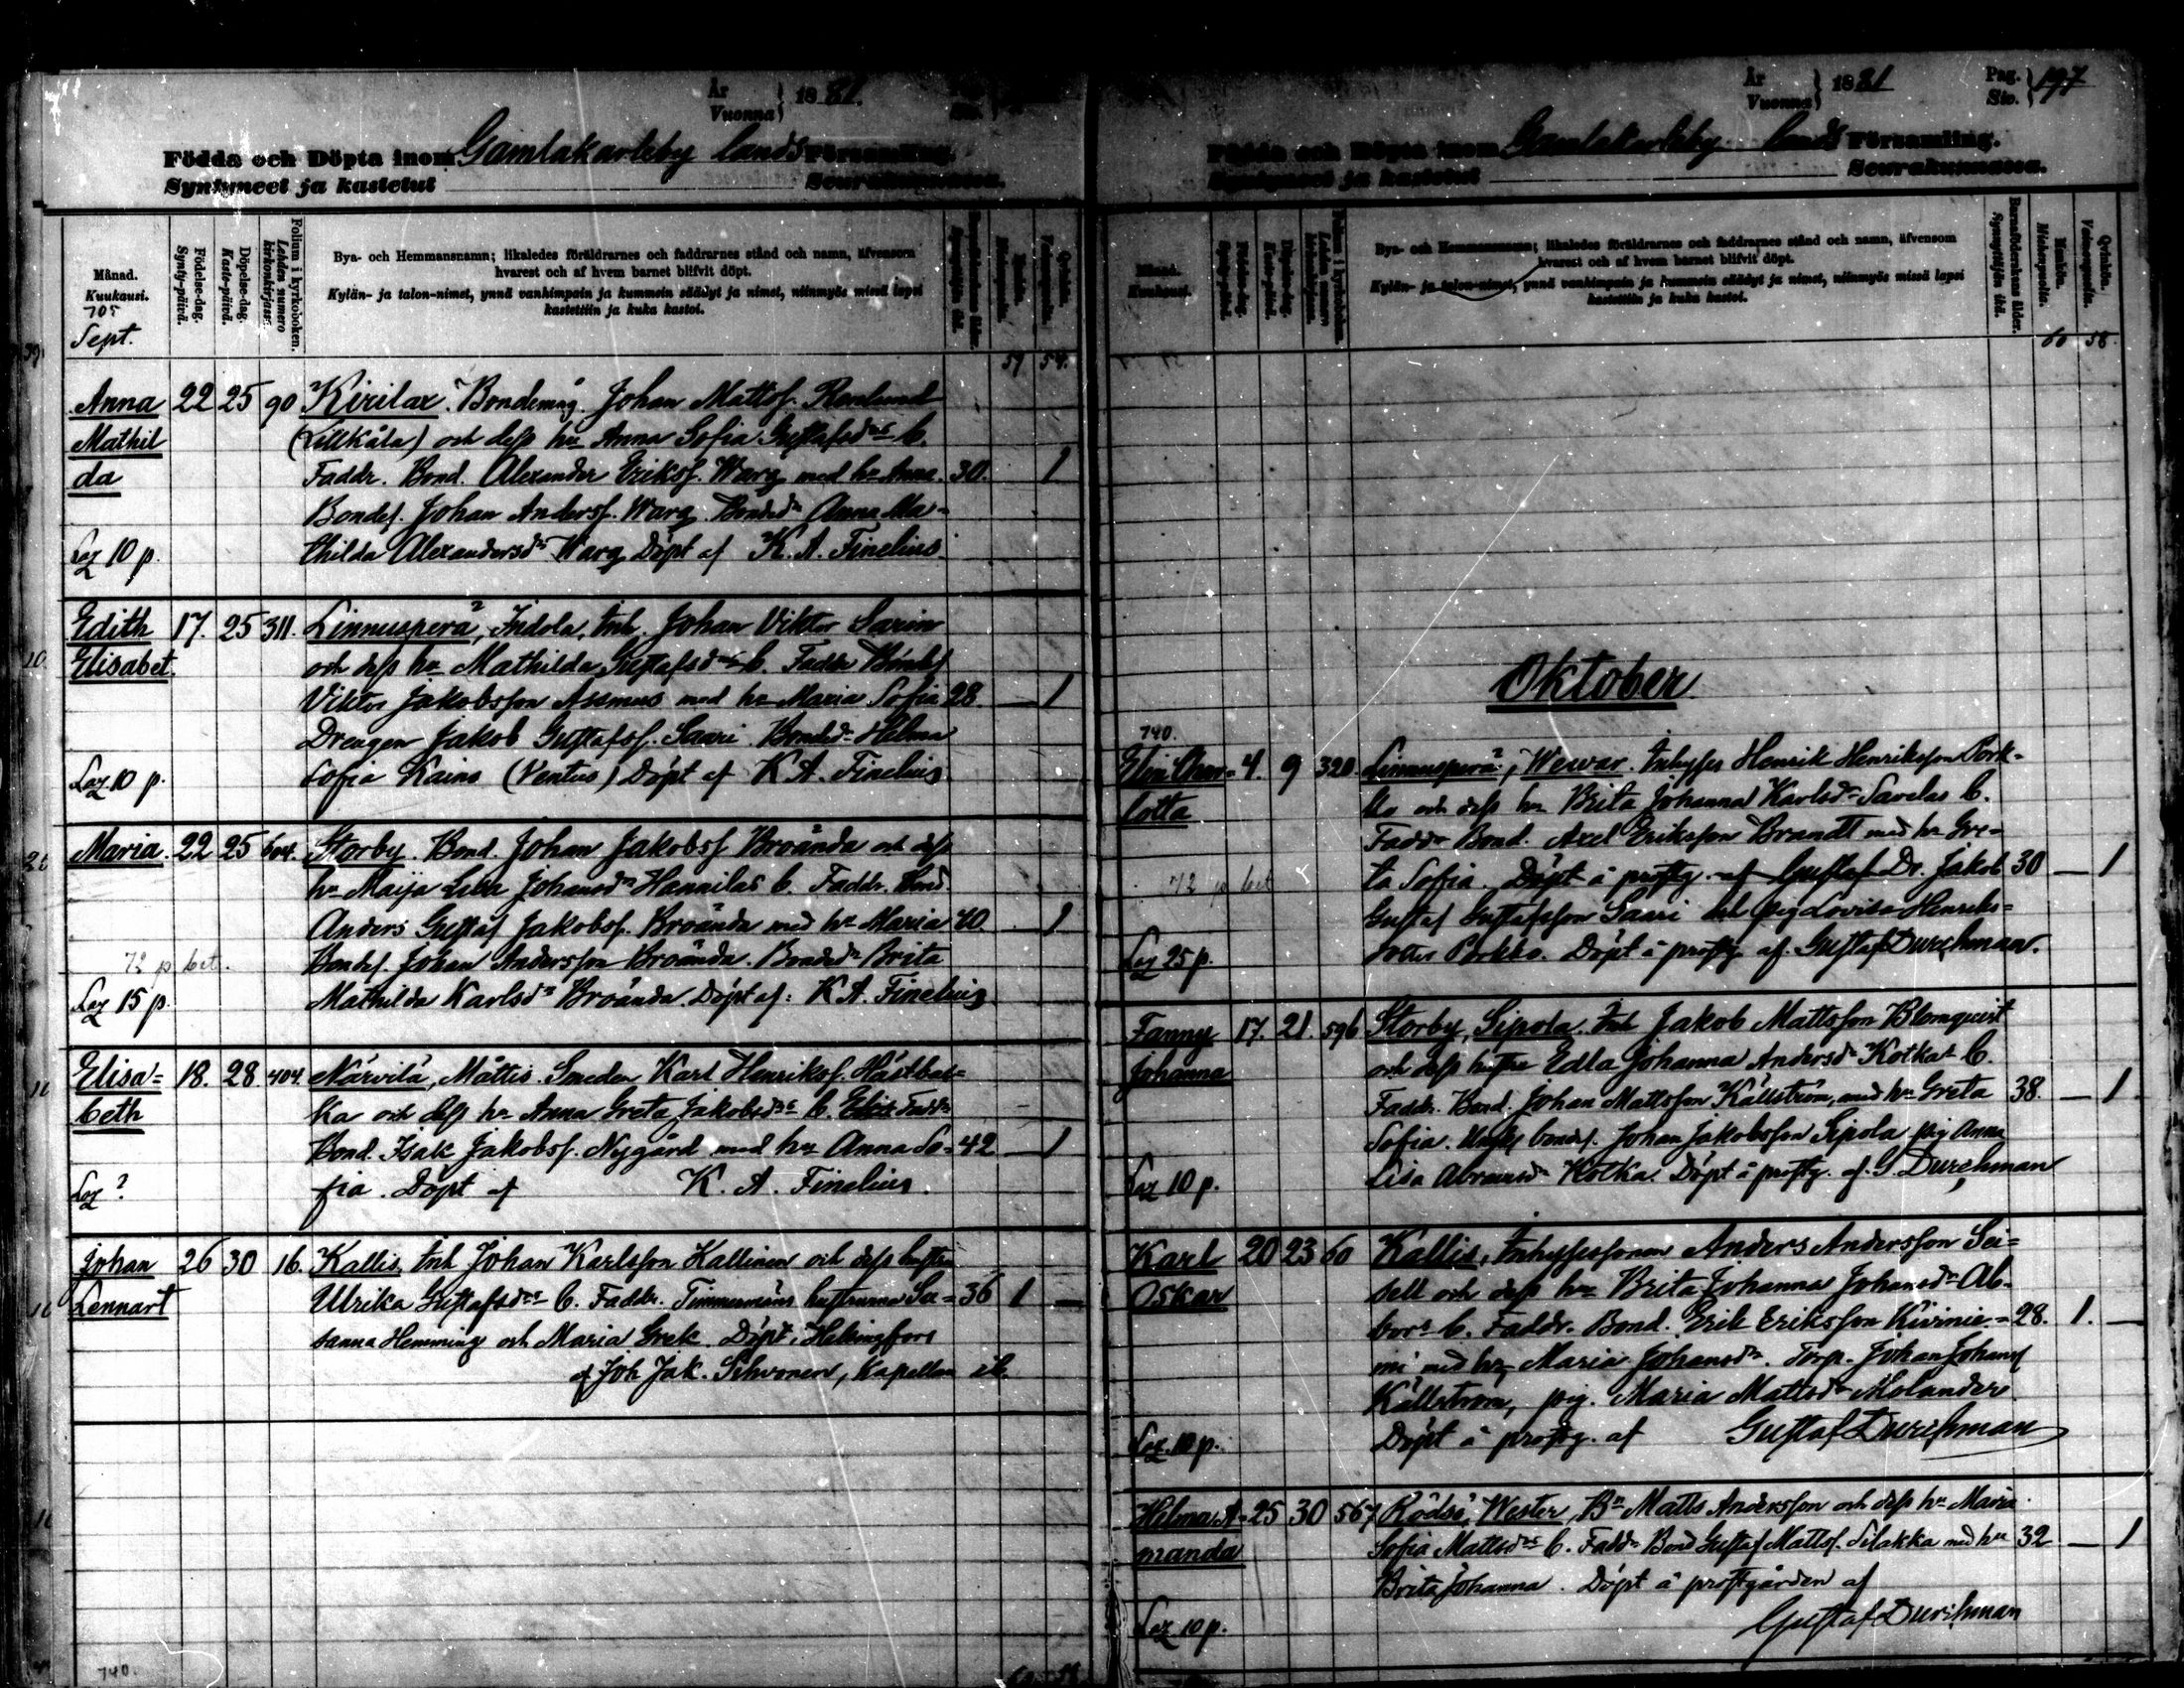 År
Vuonna } 1881.
Födda och Döpta inom Gamlakarleby lands Församling.
Syntyneet ja kastetut Seurakunnassa.
Månad.
Kuukausi.
Födelse-dag.
Synty-päivä.
Döpelse-dag.
Kaste-päivä.
Folium i kyrkoboken.
Lehden numero kirkonkirjassa.
Bya- och Hemmansnamn; likaledes föräldrarnes och faddrarnes stånd och namn, äfvensom
hvarest och af hvem barnet blifvit döpt.
Kylän- ja talon-nimet, ynnä vanhimpain ja kummein säädyt ja nimet, niinmyös missä lapsi
kastettiin ja kuka kastoi.
705
Sept.
59 54.
Anna 22 25 90 Kirilax. Bondemåg. Johan Mattsf. Ranlund
Mathil (Lillkåla) och dess hu Anna Sofia Gustafsdr b.
da Faddr. Bond. Alexander Eriksf. Warg med hu Anna. 30. 1
Bondes. Johan Andersf. Warg. Bonded. Anna Ma-
Löz 10 p. thilda Alexandersdr Warg Döpt af K. A. Finelius
Edith 17. 25 311. Linnusperä, Indola, Inh. Johan Viktor Sarin
Elisabet. och dess hu Mathilda Gustafsdr b. Faddr Bondes
Viktor Jakobsson Assmus med hu Maria Sofia 28. — 1
Drengen Jakob Gustafsf. Saari. Bonded. Helma
Löz 10 p. Sofia Kainu (Ventus) Döpt af K A. Finelius
Maria. 22 25 604. Storby. Bond. Johan Jakobsf Broända och dess
hu Maija Lisa Johansdr Hannilas b. Faddr. Bond
Anders Gustaf Jakobsf. Broända med hu Maria 40 1
72 p bet. Bondes. Johan Andersson Broända. Bonded. Brita
Löz 15 p. Mathilda Karlsdr Broända. Döpt af: K A. Finelius
Elisa- 18. 28 404. Närvilä, Mattis. Smeden Karl Henriksf. Hästbac-
beth ka och dess hu Anna Greta Jakobsdr b. Faddr
Bond. Isak Jakobsf. Nygård med hu Anna So- 42 — 1
Löz ? fia. Döpt af K. A. Finelius.
Johan 26 30 16. Kallis, Inh Johan Karlsson Kallinen och dess hustru
Lennart Ulrika Gustafsdr b. Faddr. Timmermäns hustrurna Su- 36 1 —
sanna Hemming och Maria Grek. Döpt i Helsingfors
af Joh Jak. Sihvonen, Kapellan ib.
740.
År
Vuonna } 1881
Pag.
Siv. } 197
Födda och Döpta inom Gamlakarleby lands Församling.
Syntyneet ja kastetut Seurakunnassa.
Månad.
Kuukausi.
Födelse-dag.
Synty-päivä.
Döpelse-dag.
Kaste-päivä.
Bya- och Hemmansnamn; likaledes föräldrarnes och faddrarnes stånd och namn, äfvensom
hvarest och af hvem barnet blifvit döpt.
Kylän- ja talon-nimet, ynnä vanhimpain ja kummein säädyt ja nimet, niinmyös missä lapsi
kastettiin ja kuka kastoi.
Barnaföderskans ålder.
Synnyttäjän ikä.
Mankön.
Miehenpuolta.
Qvinkön.
Vaimonpuolta.
60 58.
Oktober
740.
Elin Char- 4. 9 320. Linnusperä, Wewar. Inhyses Henrik Henriksson Pork-
lotta ko och dess hu Brita Johanna Karlsdr Savelas b.
Faddr Bond. Axel Eriksson Brandt med hu Gre-
72 p bet ta Sofia. Döpt å prostg. af Gustaf Dr. Jakob 30 — 1
Gustaf Gustafsson Saari och pig Lovisa Henriks-
Löz 25 p. dotter Porkko. Döpt å prostg af Gustaf Durchman.
Fanny 17. 21. 596 Storby, Sipola. Inh Jakob Mattsson Blomqvist
Johanna och dess hustru Edla Johanna Andersdr Kotka b.
Faddr. Bond. Johan Mattsson Källström, med hu Greta 38. — 1
Sofia. Ungk bondes. Johan Jakobsson Sipola pig Anna
Löz 10 p. Lisa Abramsdr Kotka. Döpt å prostg. af G. Durchman
Karl 20 23 60 Kallis, Inhysessonen Anders Andersson Sei-
Oskar dell och dess hu Brita Johanna Johansdr Ab-
bors b. Faddr. Bond. Erik Eriksson Kivinie- 28. 1. —
mi med hu Maria Johansdr. Torp. Johan Johansf
Källström, pig. Maria Mattsdr Molander
Löz. 10 p. Döpt å prostg. af Gustaf Durchman
Helma A- 25 30 567 Rödsö, Wester, Bn Matts Andersson och dess hu Maria
manda Sofia Mattsdr b. Faddr Bond Gustaf Mattsf. Silakka med hu 32 — 1
Brita Johanna. Döpt å prostgården af
Löz 10 p. Gustaf Durchman